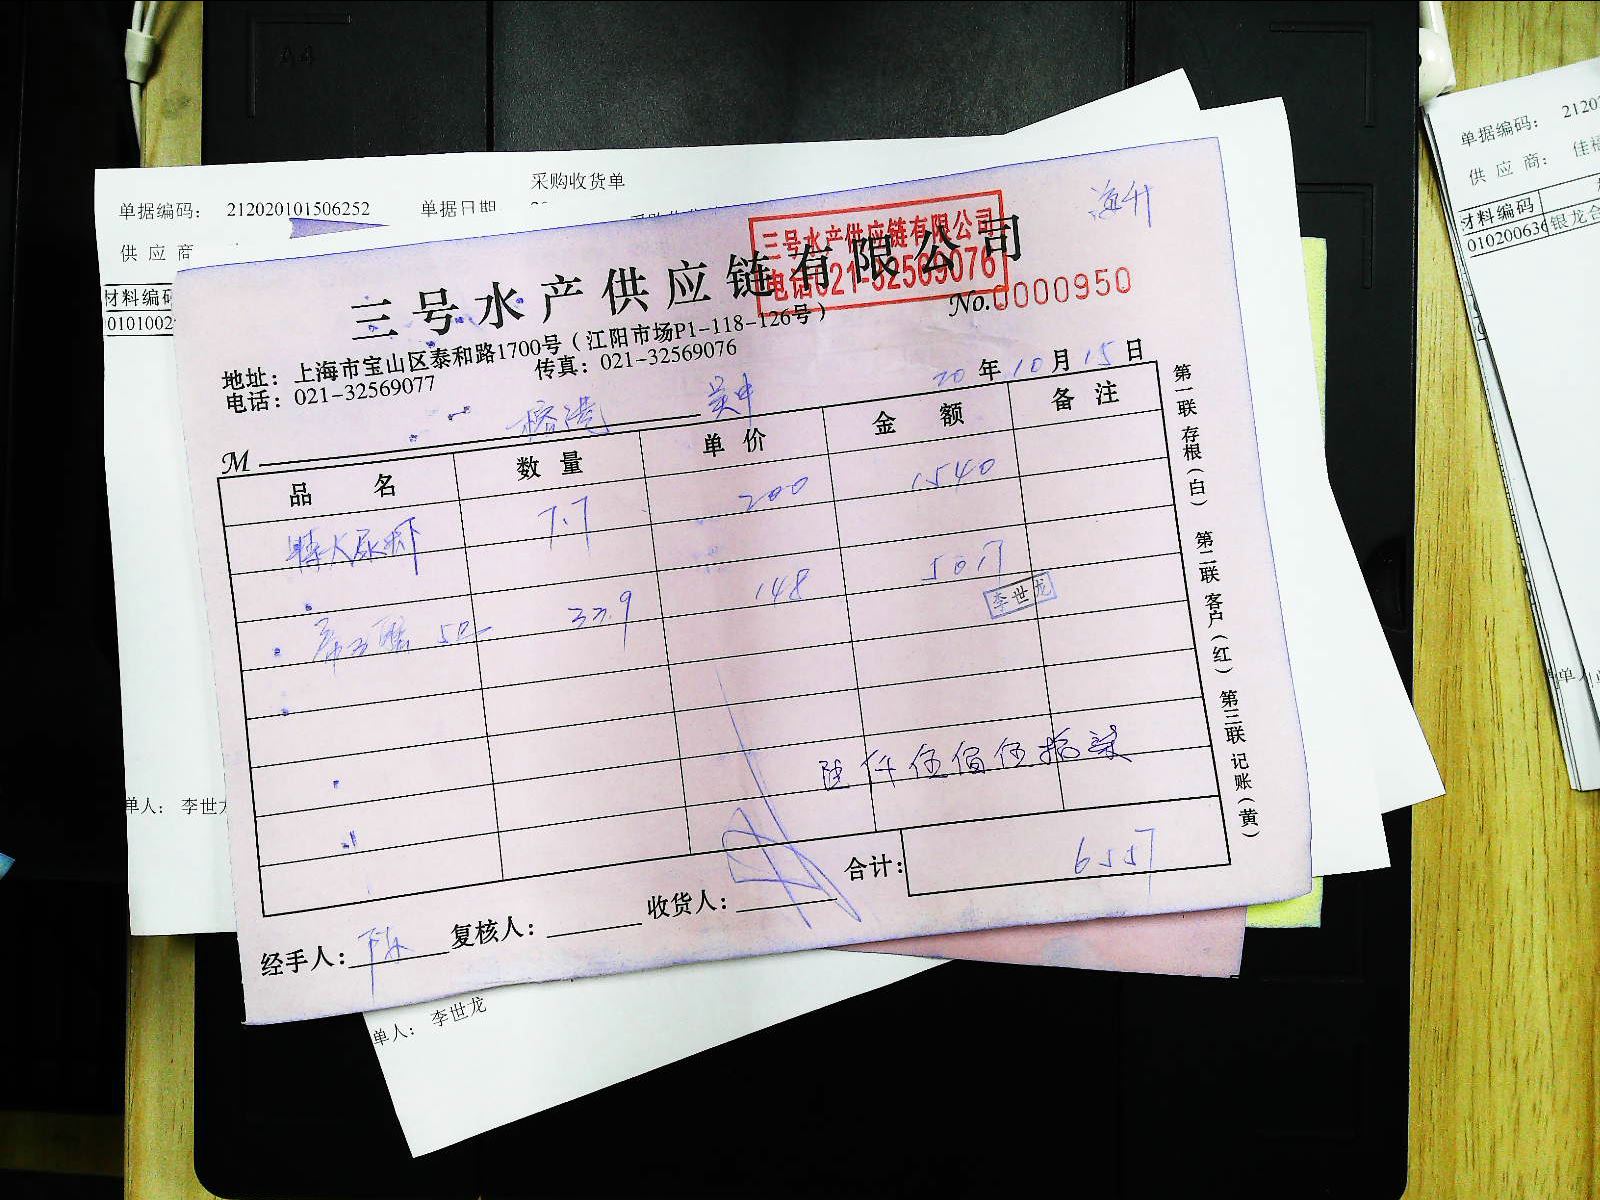 采购收货单
单据编码： 212020101506252 单据日期
供应商
材料编码
0101002
三号水产供应链有限公司
电话021-32569076
海升
三号水产供应链有限公司
No.0000950
地址：上海市宝山区泰和路1700号（江阳市场P1-118-126号）
电话：021-32569077 传真：021-32569076
20 年 10 月 15 日
M 榕港 吴中
品 名 数 量 单 价 金 额 备 注
特大尿虾 7.7 200 1540
33.9 148 5017
李世龙
陆仟伍佰伍拾柒
合计： 6557
经手人：陈 复核人： 收货人：
第一联 存根（白） 第二联 客户（红） 第三联 记账（黄）
单人： 李世龙
单人： 李世龙
单据编码： 2120
供应商： 佳福
材料编码
01020063 银龙
单人